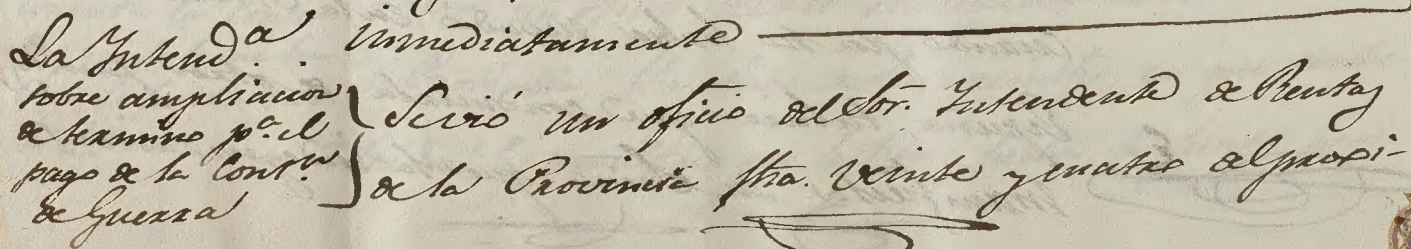 La Intend.ª
sobre ampliacion
de termino p.ª el
pago de la Cont.ⁿ
de Guerra
inmediatamente
Se vió un oficio del Sor. Intendente de Rentas
de la Provincia fha. veinte y cuatro del proxi-